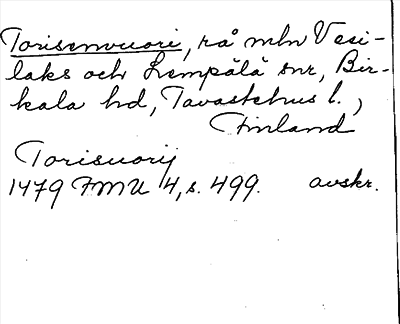 Torisenvuori, rå mln Vesi-
laks och Lempälä snr, Bir-
kala hd, Tavastehus l.,
Finland
Torisuorij
1479 FMU 4, s. 499. avskr.